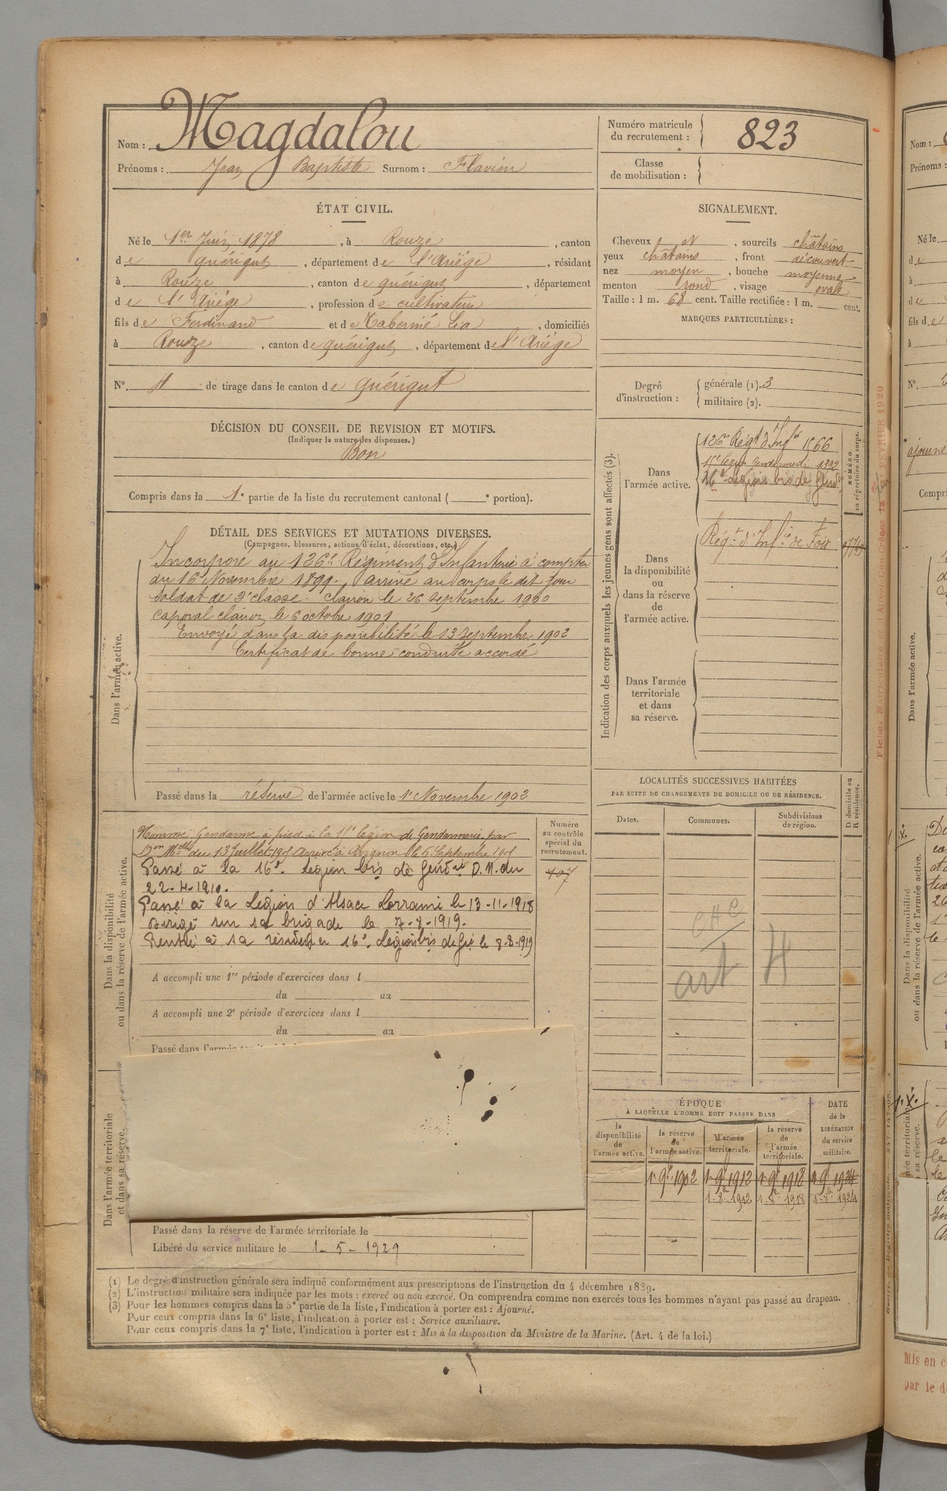 Nom : Magdalou
Prénoms : Jean Baptiste Surnom : Flavien
Numéro matricule du recrutement : 823
Classe de mobilisation :
ÉTAT CIVIL.
Né le 1er Juin 1878, à Rouze, canton
de quérigut, département de l'Ariège, résidant
à Rouze, canton de quérigut, département
de l'Ariége, profession de cultivateur
fils de Ferdinand et de Lea, domiciliés
à Rouze, canton de quérigut, département de l'Ariége
N° 1 de tirage dans le canton de quérigut
SIGNALEMENT.
Cheveux et, sourcils châtains
yeux châtains, front découvert
nez moyen, bouche moyenne
menton rond, visage ovale
Taille : 1 m. 68 cent. Taille rectifiée : 1 m. cent.
MARQUES PARTICULIÈRES :
Degré d'instruction : générale (1). 3
militaire (2).
DÉCISION DU CONSEIL DE REVISION ET MOTIFS.
(Indiquer la nature des dispenses.)
Bon
Compris dans la 1e partie de la liste du recrutement cantonal ( e portion).
DÉTAIL DES SERVICES ET MUTATIONS DIVERSES.
(Campagnes, blessures, actions d'éclat, décorations, etc.)
Dans l'armée active.
Incorporé au 126e Régiment d'Infanterie à compter
du 16 Novembre 1899, arrivé au corps le dit jour
Soldat de 2e classe. Clairon le 26 Septembre 1900
Caporal clairon le 6 octobre 1901
Envoyé dans la disponibilité le 13 Septembre 1902
Certificat de bonne conduite accordé
Passé dans la réserve de l'armée active le 1er Novembre 1902
Indication des corps auxquels les jeunes gens sont affectés (3).
Dans l'armée active.
126e Régt d'Infie 1566
16e Légion bis de Gend
NUMÉRO au répertoire du corps.
Dans la disponibilité ou dans la réserve de l'armée active.
Régt d'Infie de Foix
Dans l'armée territoriale et dans sa réserve.
LOCALITÉS SUCCESSIVES HABITÉES
PAR SUITE DE CHANGEMENTS DE DOMICILE OU DE RÉSIDENCE.
Dates.
Communes.
Subdivisions de région.
D domicile ou R résidence.
art H
Dans la disponibilité ou dans la réserve de l'armée active.
Numéro au contrôle spécial du recrutement.
Nommé Gendarme à pied à la Légion de Gendarmerie par
Passé à la 16e légion bis de Gendie D.M. du
22-4-1910.
Passé à la Légion d'Alsace Lorraine le 13-11-1918
Dirigé sur sa brigade le 7-8-1919.
Rentré à sa résidence 16e Légion bis de Gie le 8-8-1919
A accompli une 1re période d'exercices dans l
du au
A accompli une 2e période d'exercices dans l
du au
Passé dans l'armée
Dans l'armée territoriale et dans sa réserve.
Passé dans la réserve de l'armée territoriale le
Libéré du service militaire le 1-5-1929
ÉPOQUE
À LAQUELLE L'HOMME DOIT PASSER DANS
la disponibilité de l'armée active.
la réserve de l'armée active.
l'armée territoriale.
la réserve de l'armée territoriale.
DATE de la LIBÉRATION du service militaire.
(1) Le degré d'instruction générale sera indiqué conformément aux prescriptions de l'instruction du 4 décembre 1889.
(2) L'instruction militaire sera indiquée par les mots : exercé ou non exercé. On comprendra comme non exercés tous les hommes n'ayant pas passé au drapeau.
(3) Pour les hommes compris dans la 5e partie de la liste, l'indication à porter est : Ajourné.
Pour ceux compris dans la 6e liste, l'indication à porter est : Service auxiliaire.
Pour ceux compris dans la 7e liste, l'indication à porter est : Mis à la disposition du Ministre de la Marine. (Art. 4 de la loi.)
Mis en
par le